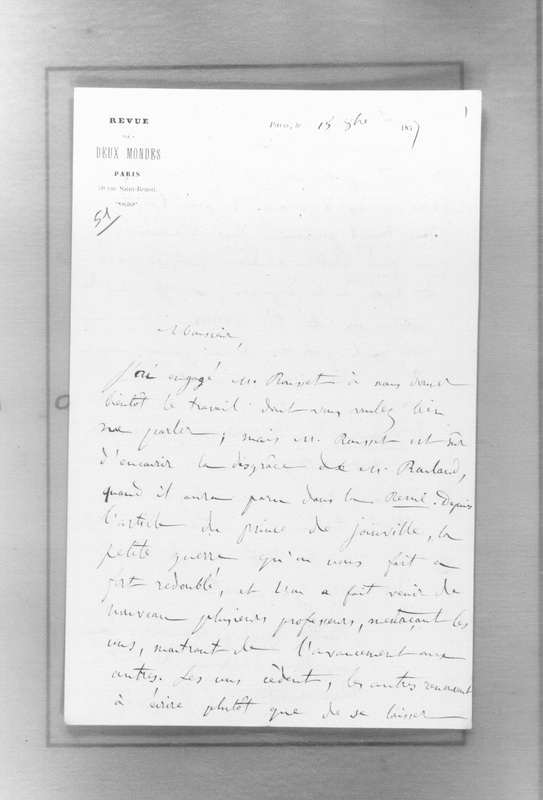 REVUE
DES
DEUX MONDES
PARIS
20, rue Saint-Benoit.
Paris, le 18 8bre 1857
1
51
Monsieur,
j'ai engagé M. Rousset à nous donner
bientôt le travail dont vous voulez bien
me parler; mais M. Rousset est sûr
d'encourir la disgrâce de M. Rouland,
quand il aura paru dans la Revue. Depuis
l'article du prince de Joinville, la
petite guerre qu'on nous fait a
fort redoublé, et l'on a fait venir de
nouveau plusieurs professeurs, menaçant les
uns, montrant de l'avancement aux
autres. Les uns cèdent, les autres renoncent
à écrire plutôt que de se laisser